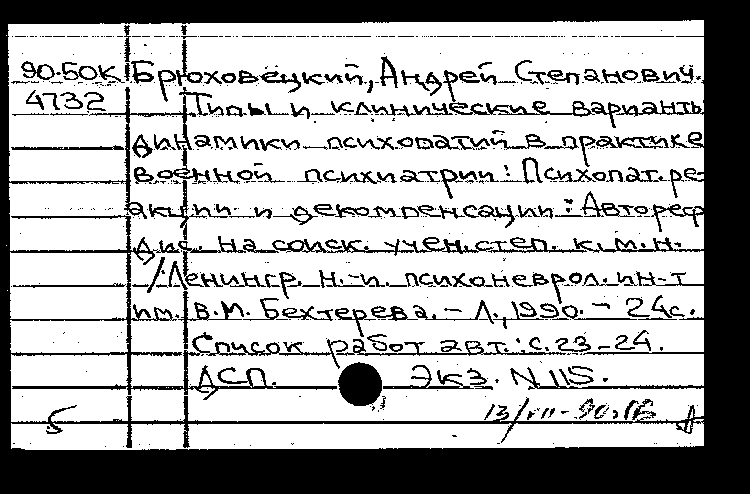 90-50К Брюховецкий, Андрей Степанович.
4732 Типы и клинические варианты
динамики психопатий в практике
военной психиатрии: Психопат. ре-
акции и декомпенсации: Автореф
дис. на соиск. учен. степ. к.м.н.
/Ленингр. н.-и. психоневрол. ин-т
им. В.М. Бехтерева. - Л., 1990. - 24с.
Список работ авт.: с. 23-24.
ДСП. Экз. N 115.
5 13/VII-90. А